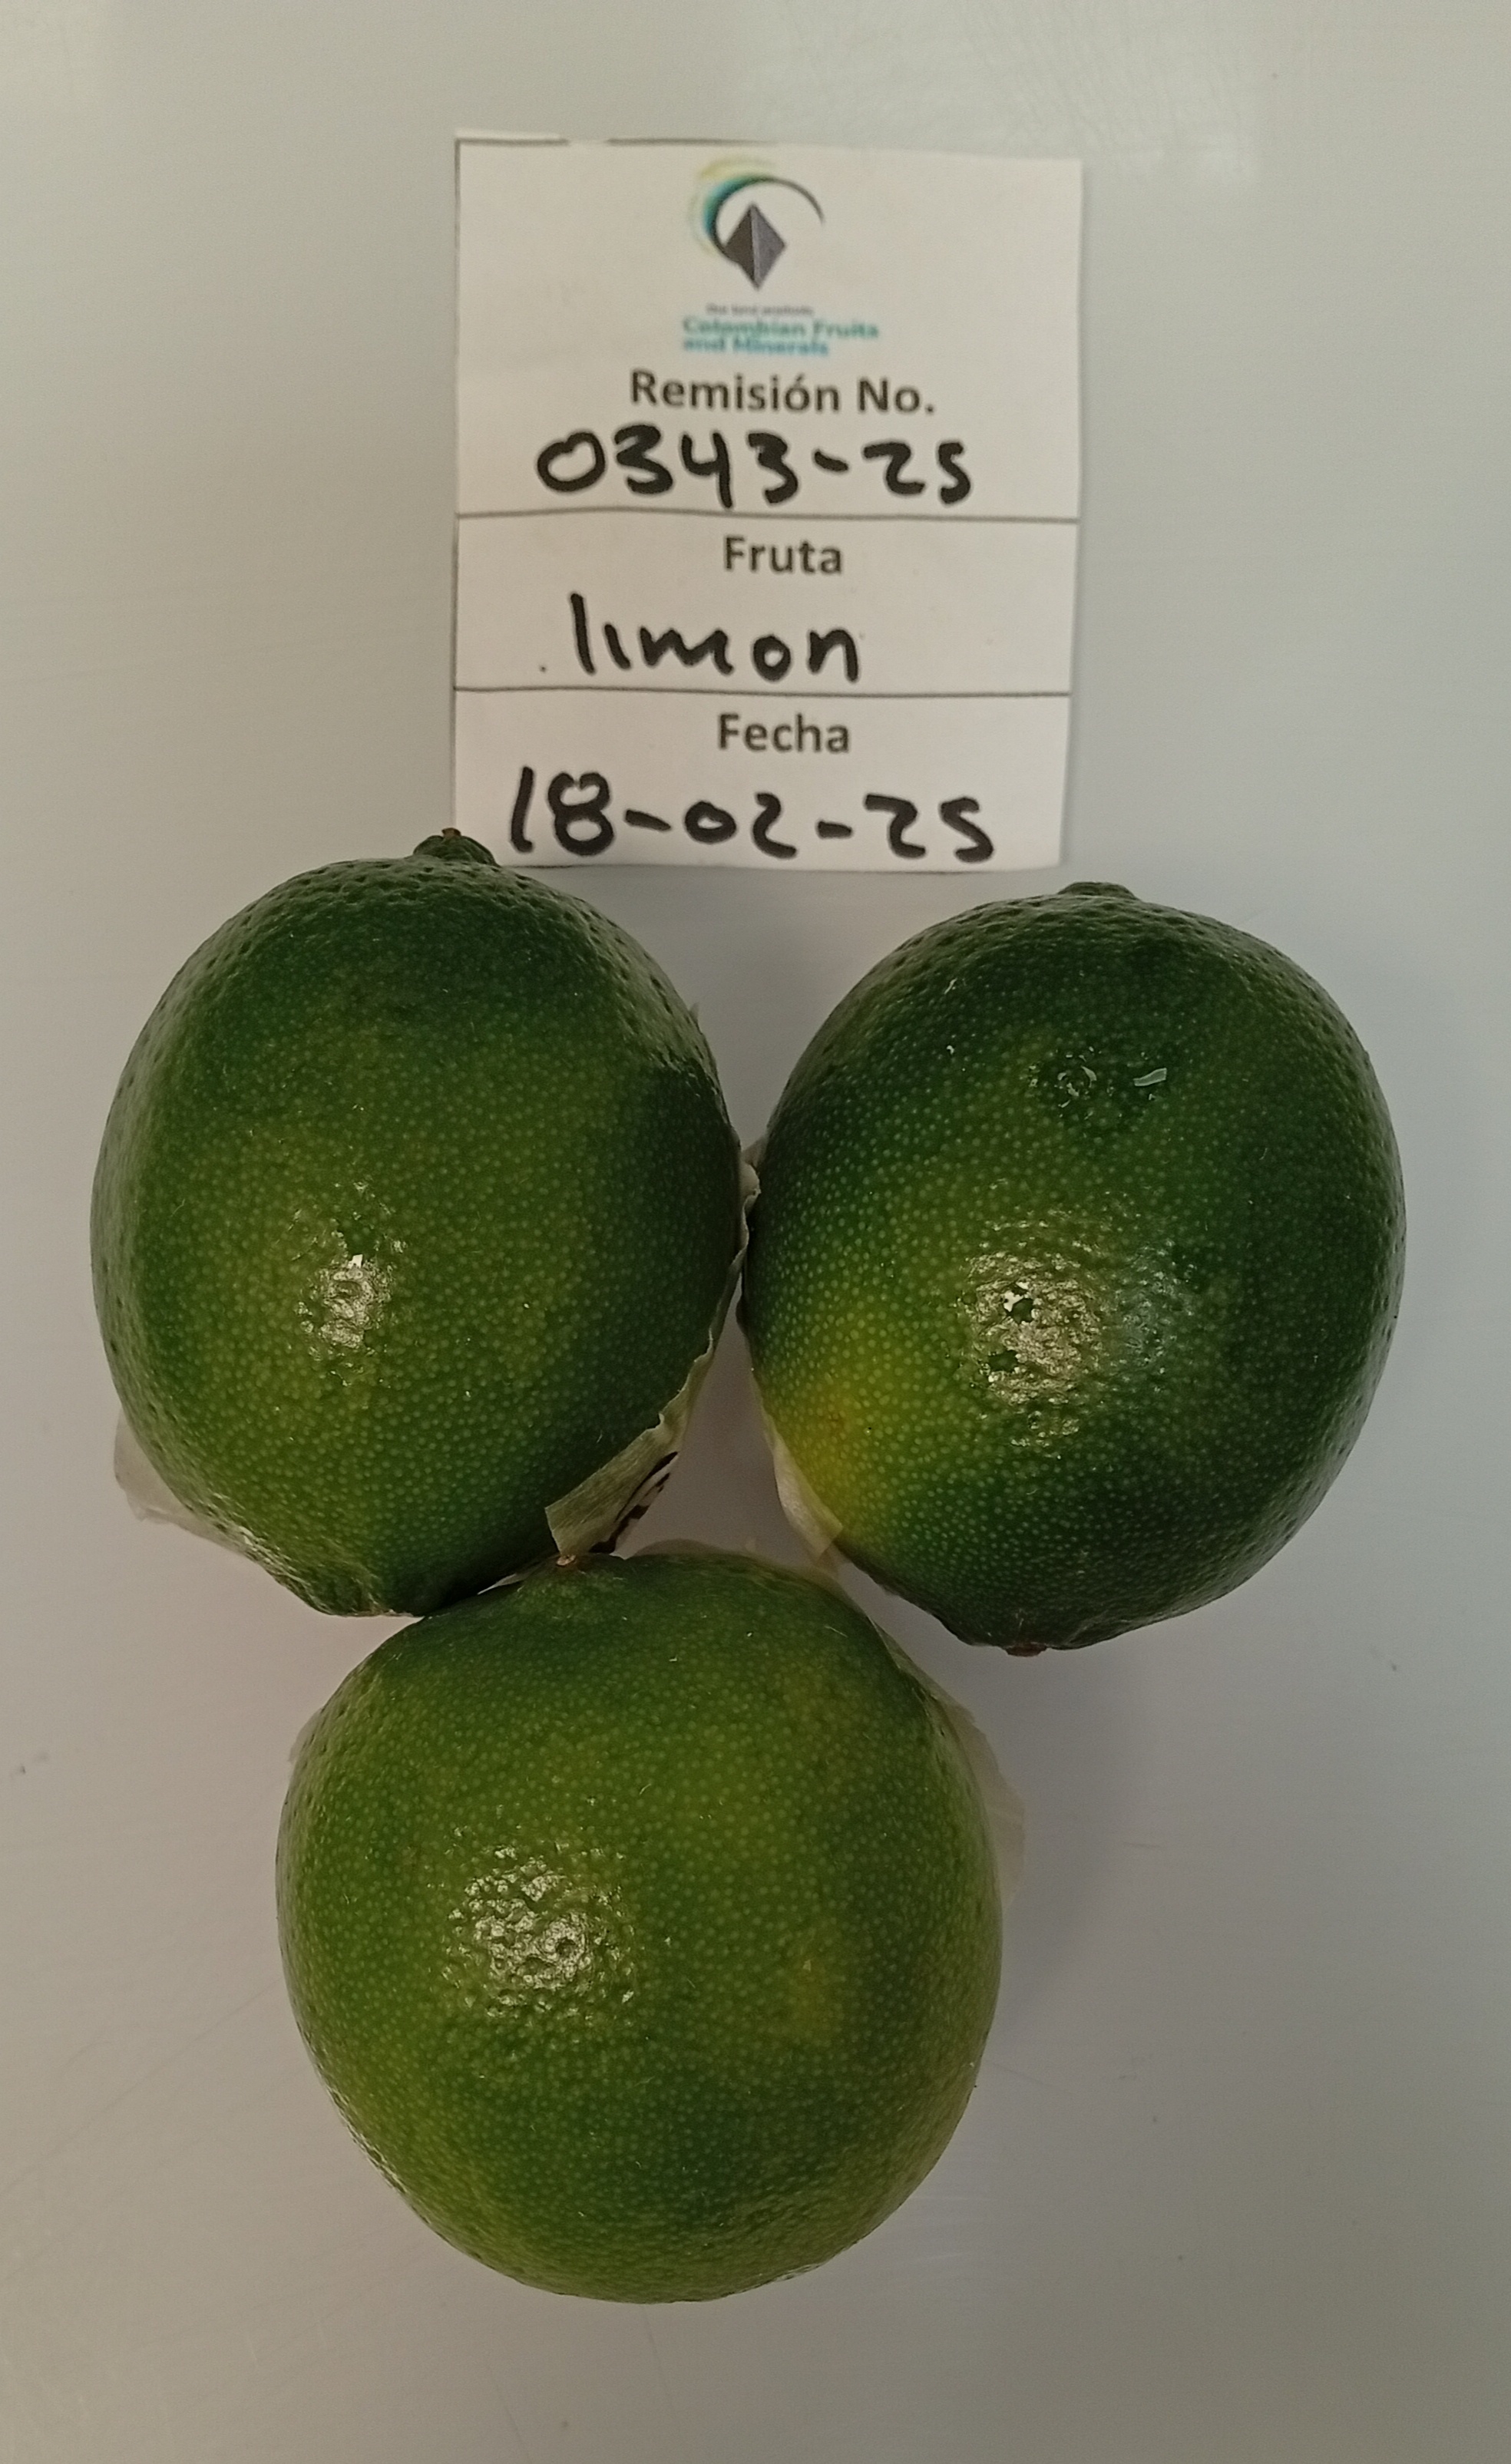 Colombian Fruits
and Minerals
Remisión No.
0343-25
Fruta
limon
Fecha
18-02-25